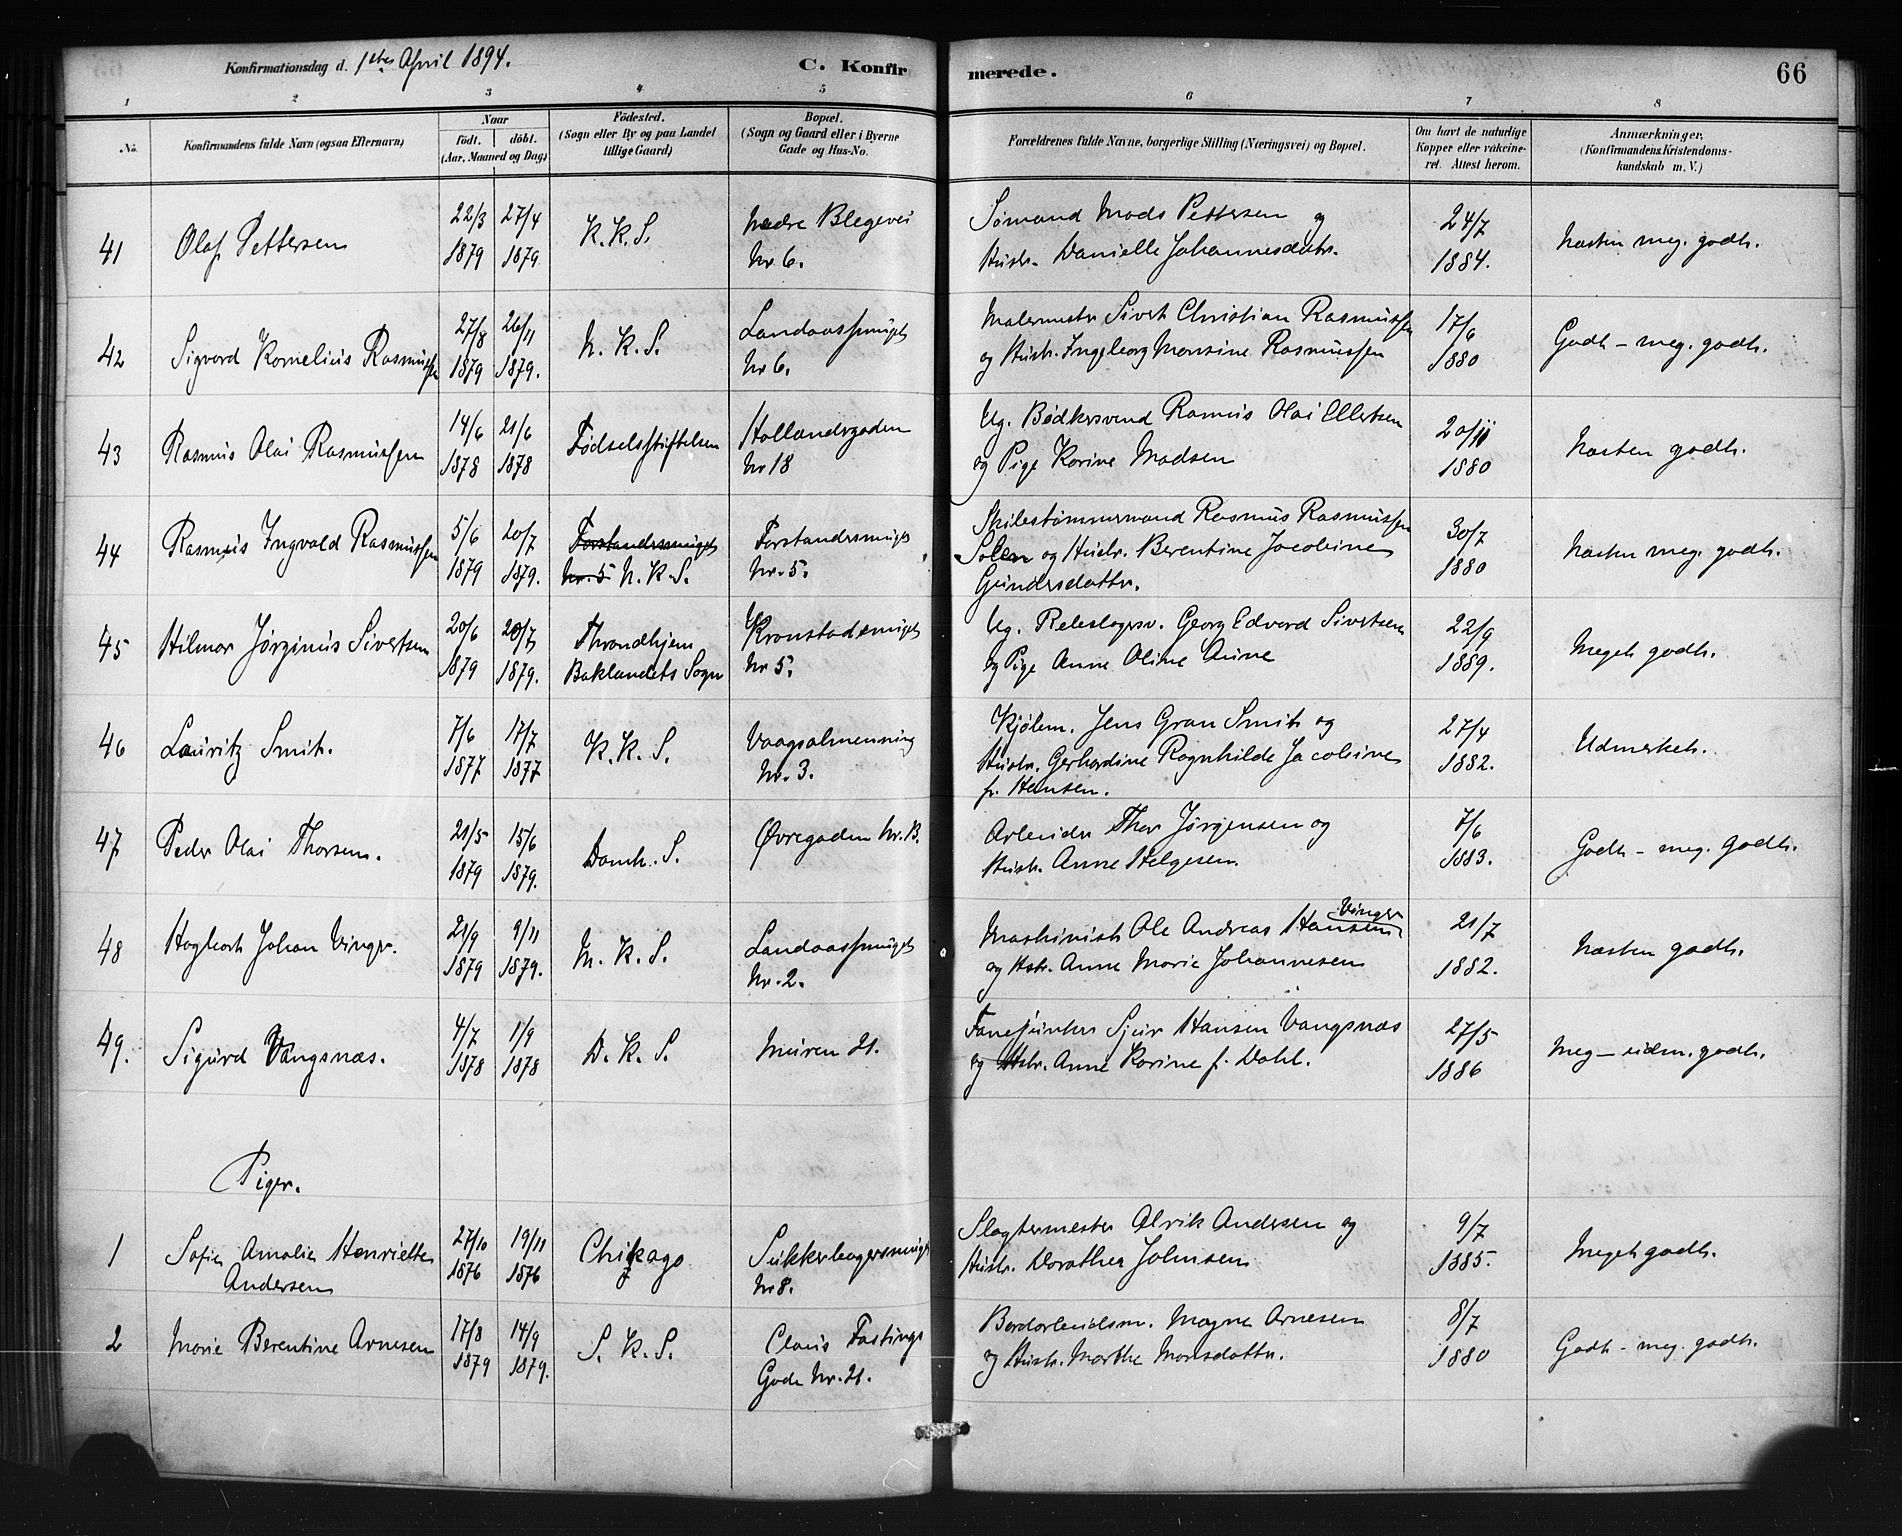 Konfirmationsdag d. 1ste April 1894. C. Konfirmerede. 66
1 2 3 4 5 6 7 8
No. Konfirmandens fulde Navn (ogsaa Efternavn) Naar födt. döbt. (Aar, Maaned og Dag) Födested. (Sogn eller By og paa Landet tillige Gaard) Bopæl. (Sogn og Gaard eller i Byerne Gade og Hus-No. Forældrenes fulde Navne, borgerlige Stilling (Næringsvei) og Bopæl. Om havt de naturlige Kopper eller vakcineret. Attest herom. Anmærkninger, (Konfirmandens Kristendomskundskab m. V.)
41 Olaf Pettersen 22/3 1879 27/4 1879 K. K. S. Nedre Blegevei Nr 6. Sømand Mads Pettersen og
Hustr. Danielle Johannesdatr. 24/7 1884. Næsten meg. godt.
42 Sigvard Kornelius Rasmussen 27/8 1879 26/11 1879. N. K. S. Landaassmuget Nr 6. Malermestr Sivert Christian Rasmussen
og Hustr. Ingeborg Monsine Rasmussen 17/6 1880 Godt - meg. godt.
43 Rasmus Olai Rasmussen 14/6 1878 21/6 1878 Fødselsstiftelsen Hollendergaden Nr 18 Ug. Bødkersvend Rasmus Olai Ellertsen
og Pige Karine Madsen 20/11 1880 Næsten godt.
44 Rasmus Ingvald Rasmussen 5/6 1879 20/7 1879. Forstandersmuget Nr. 5 N. K. S. Forstandersmuget Nr. 5. Rasmus Rasmussen
Solem og Hustr. Berentine Jacobine
Gundersdattr. 30/7 1880 Næsten meg. godt.
45 Hilmar Jørginus Sivertsen 20/6 1879 20/7 1879. Throndhjem Baklandets Sogn Kronstadsmuget Nr 5. Ug. Rebslagersv. Georg Edvard Sivertsen
og Pige Anne Oline Aune 22/9 1889. Meget godt.
46 Lauritz Smit. 7/6 1877 17/7 1877 K. K. S. Vaagsalmenning Nr. 3. Kjølem. Jens Gran Smit og
Hustr. Gerhardine Ragnhilde Jacobine
f. Hansen. 27/4 1882. Udmerket.
47 Peder Olai Thorsen. 21/5 1879 15/6 1879. Domk. S. Øvregaden Nr. B. Arbeider Thor Jørgensen og
Hustr. Anne Helgesen. 7/6 1883. Godt - meg. godt.
48 Hagbart Johan Vinger. 21/9 1879 9/11 1879. N. K. S. Landaassmuget Nr. 2. Maskinist Ole Andreas Hansen Vinger
og Hstr. Anne Marie Johannesen 21/7 1882. Næsten godt.
49. Sigurd Vangsnæs. 4/7 1878 1/9 1878 D. K. S. Muren 21. Fanejunker Sjur Hansen Vangsnæs
og Hstr. Anne Karine f. Dahl. 27/5 1886 Meg - udm. godt.
Piger.
1 Sofie Amalie Henriette
Andersen 27/10 1876 19/11 1876 Chikago Sukkerhagersmuget Nr 8. Slagtermester Alrik Andersen og
Hustr. Dorathea Johnsen 9/7 1885. Meget godt.
2 Marie Berentine Arnesen 17/8 1879 14/9 1879. S. K. S. Claus Fastings Gade Nr. 21. Bordarbeidsm. Magne Arnesen
og Hustr. Marthe Monsdattr. 8/7 1880 Godt - meg. godt.